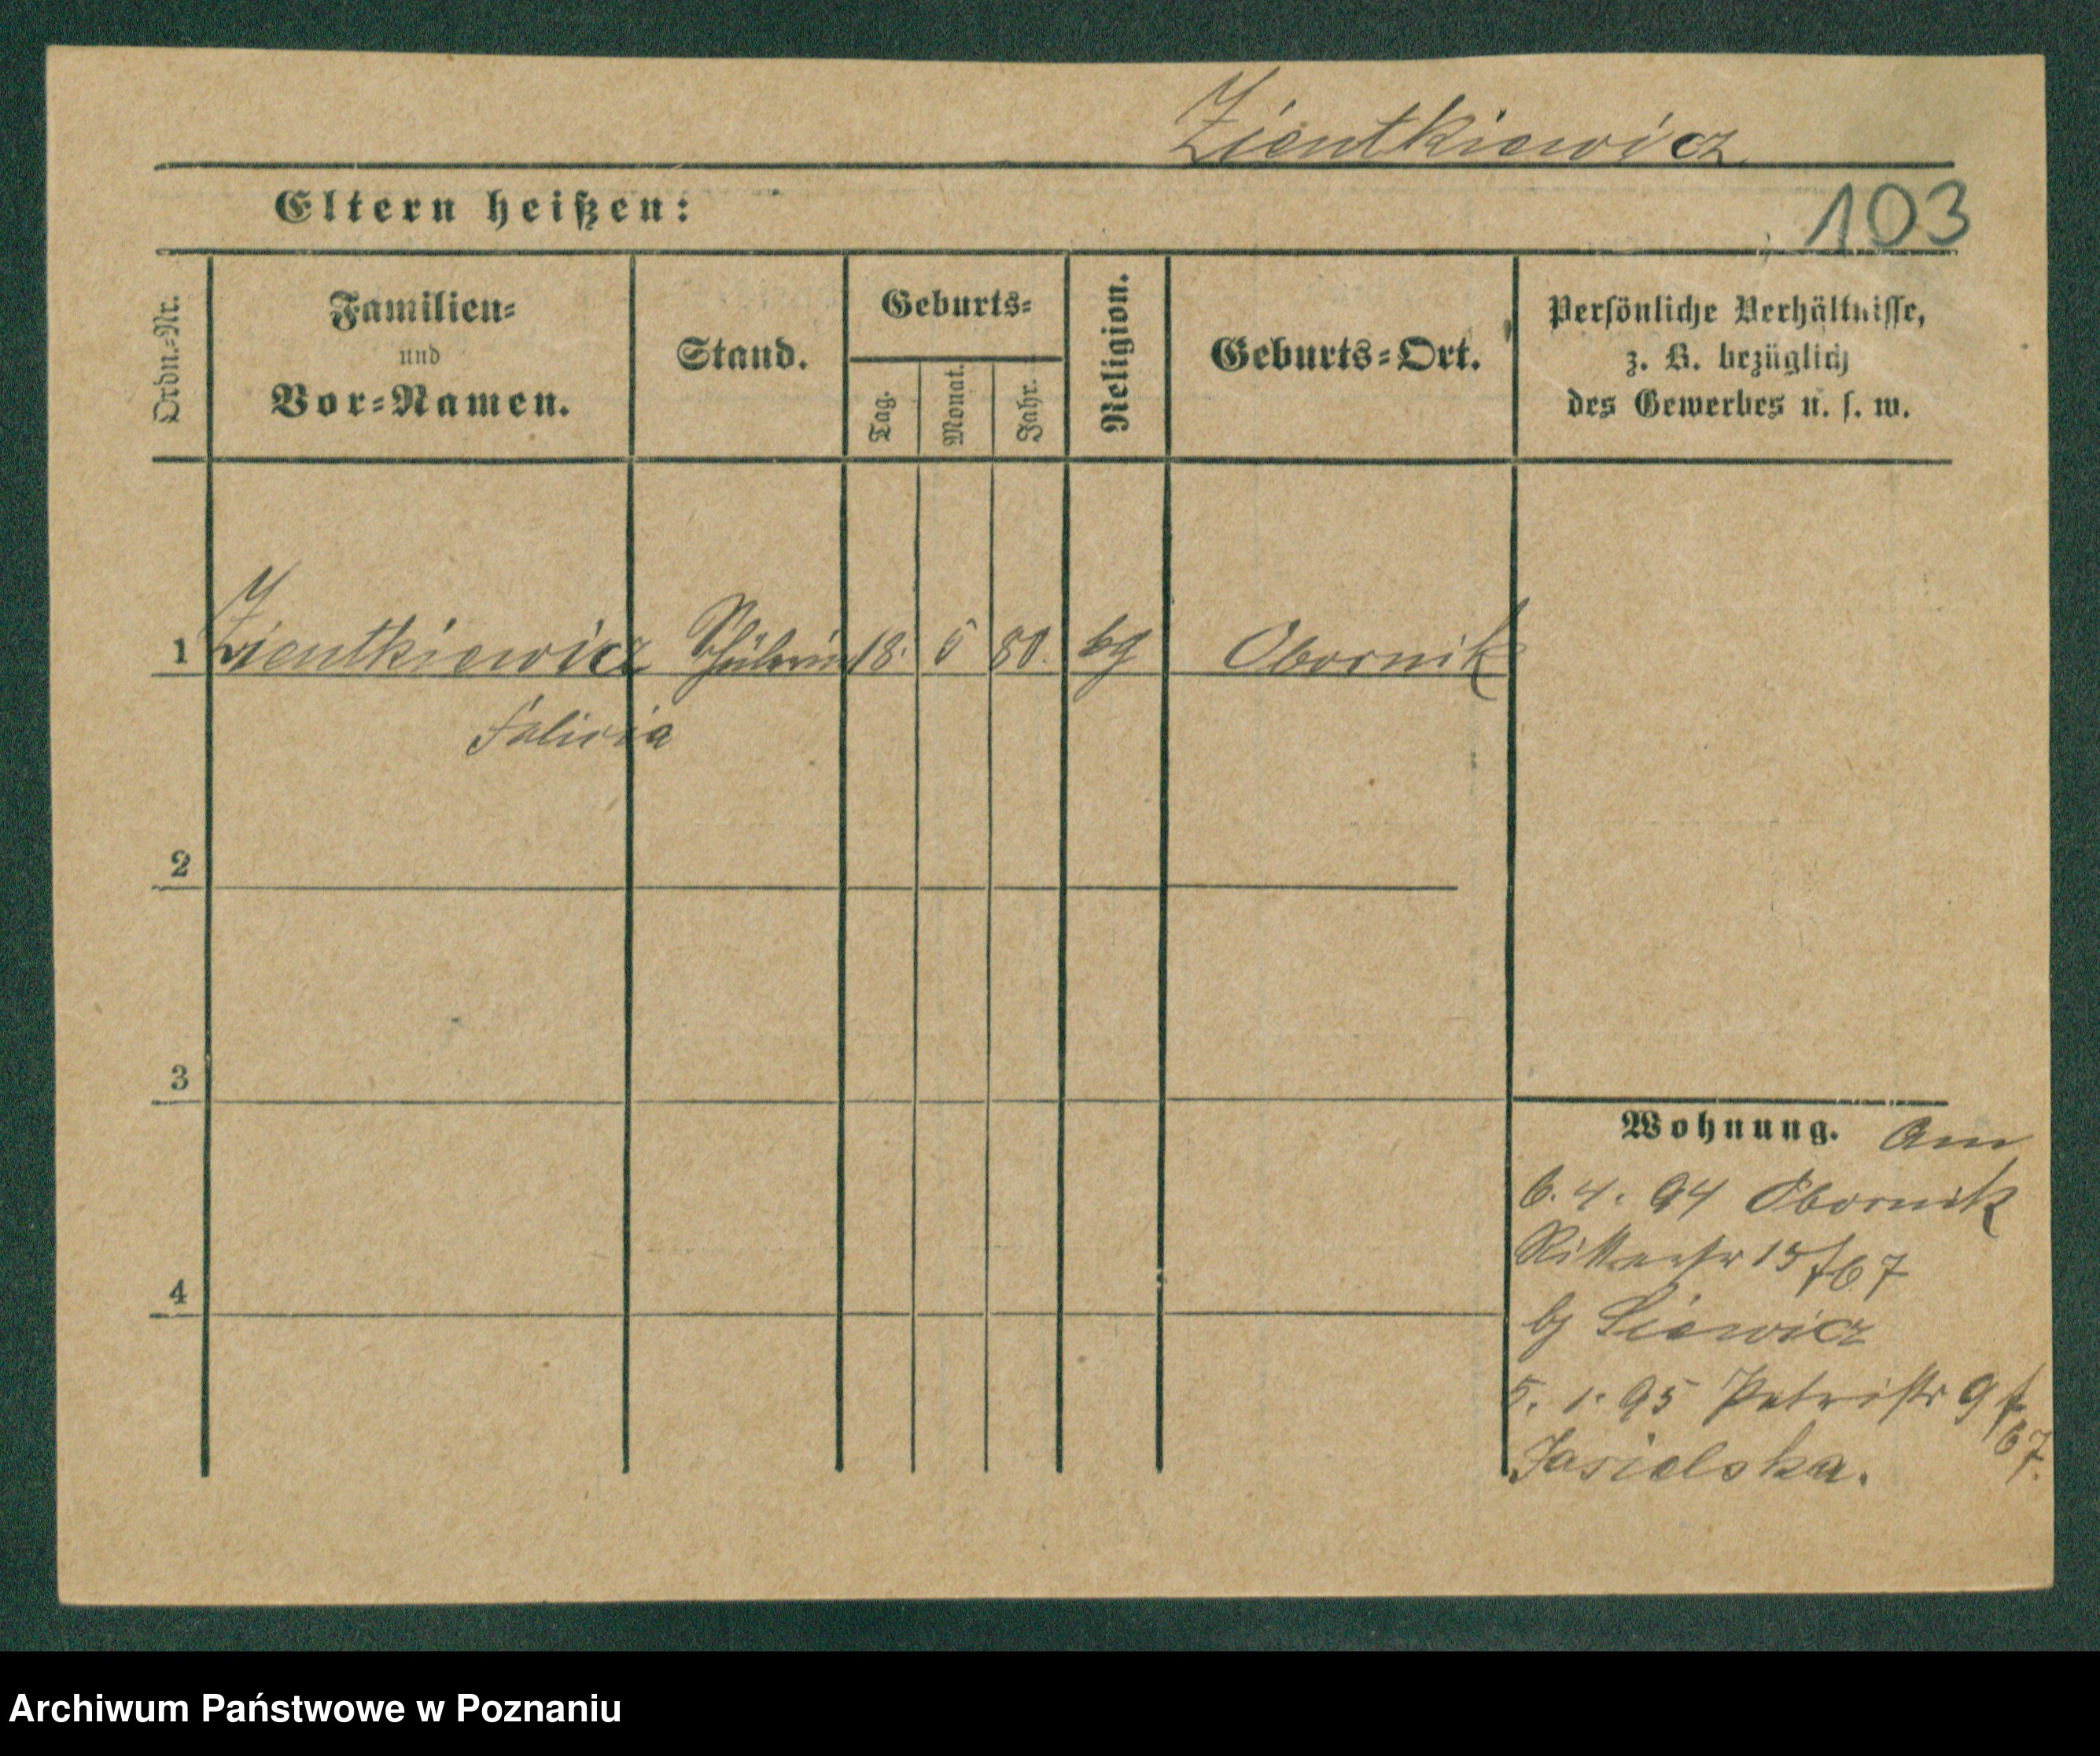 Zientkiewicz
Eltern heißen:
103
Ordn.-Nr.
Familien-
und
Vor-Namen.
Stand.
Geburts-
Tag.
Monat.
Jahr.
Religion.
Geburts-Ort.
Persönliche Verhältnisse,
z. B. bezüglich
des Gewerbes u. s. w.
1 Zientkiewicz Schülerin 18. 5 80. Obornik
Felicia
2
3
4
Wohnung. Am
6. 4. 94 Obornik
Ritterstr 15/67
Siewicz
5. 1. 95 Petristr 9
67.
Jasielska.
Archiwum Państwowe w Poznaniu